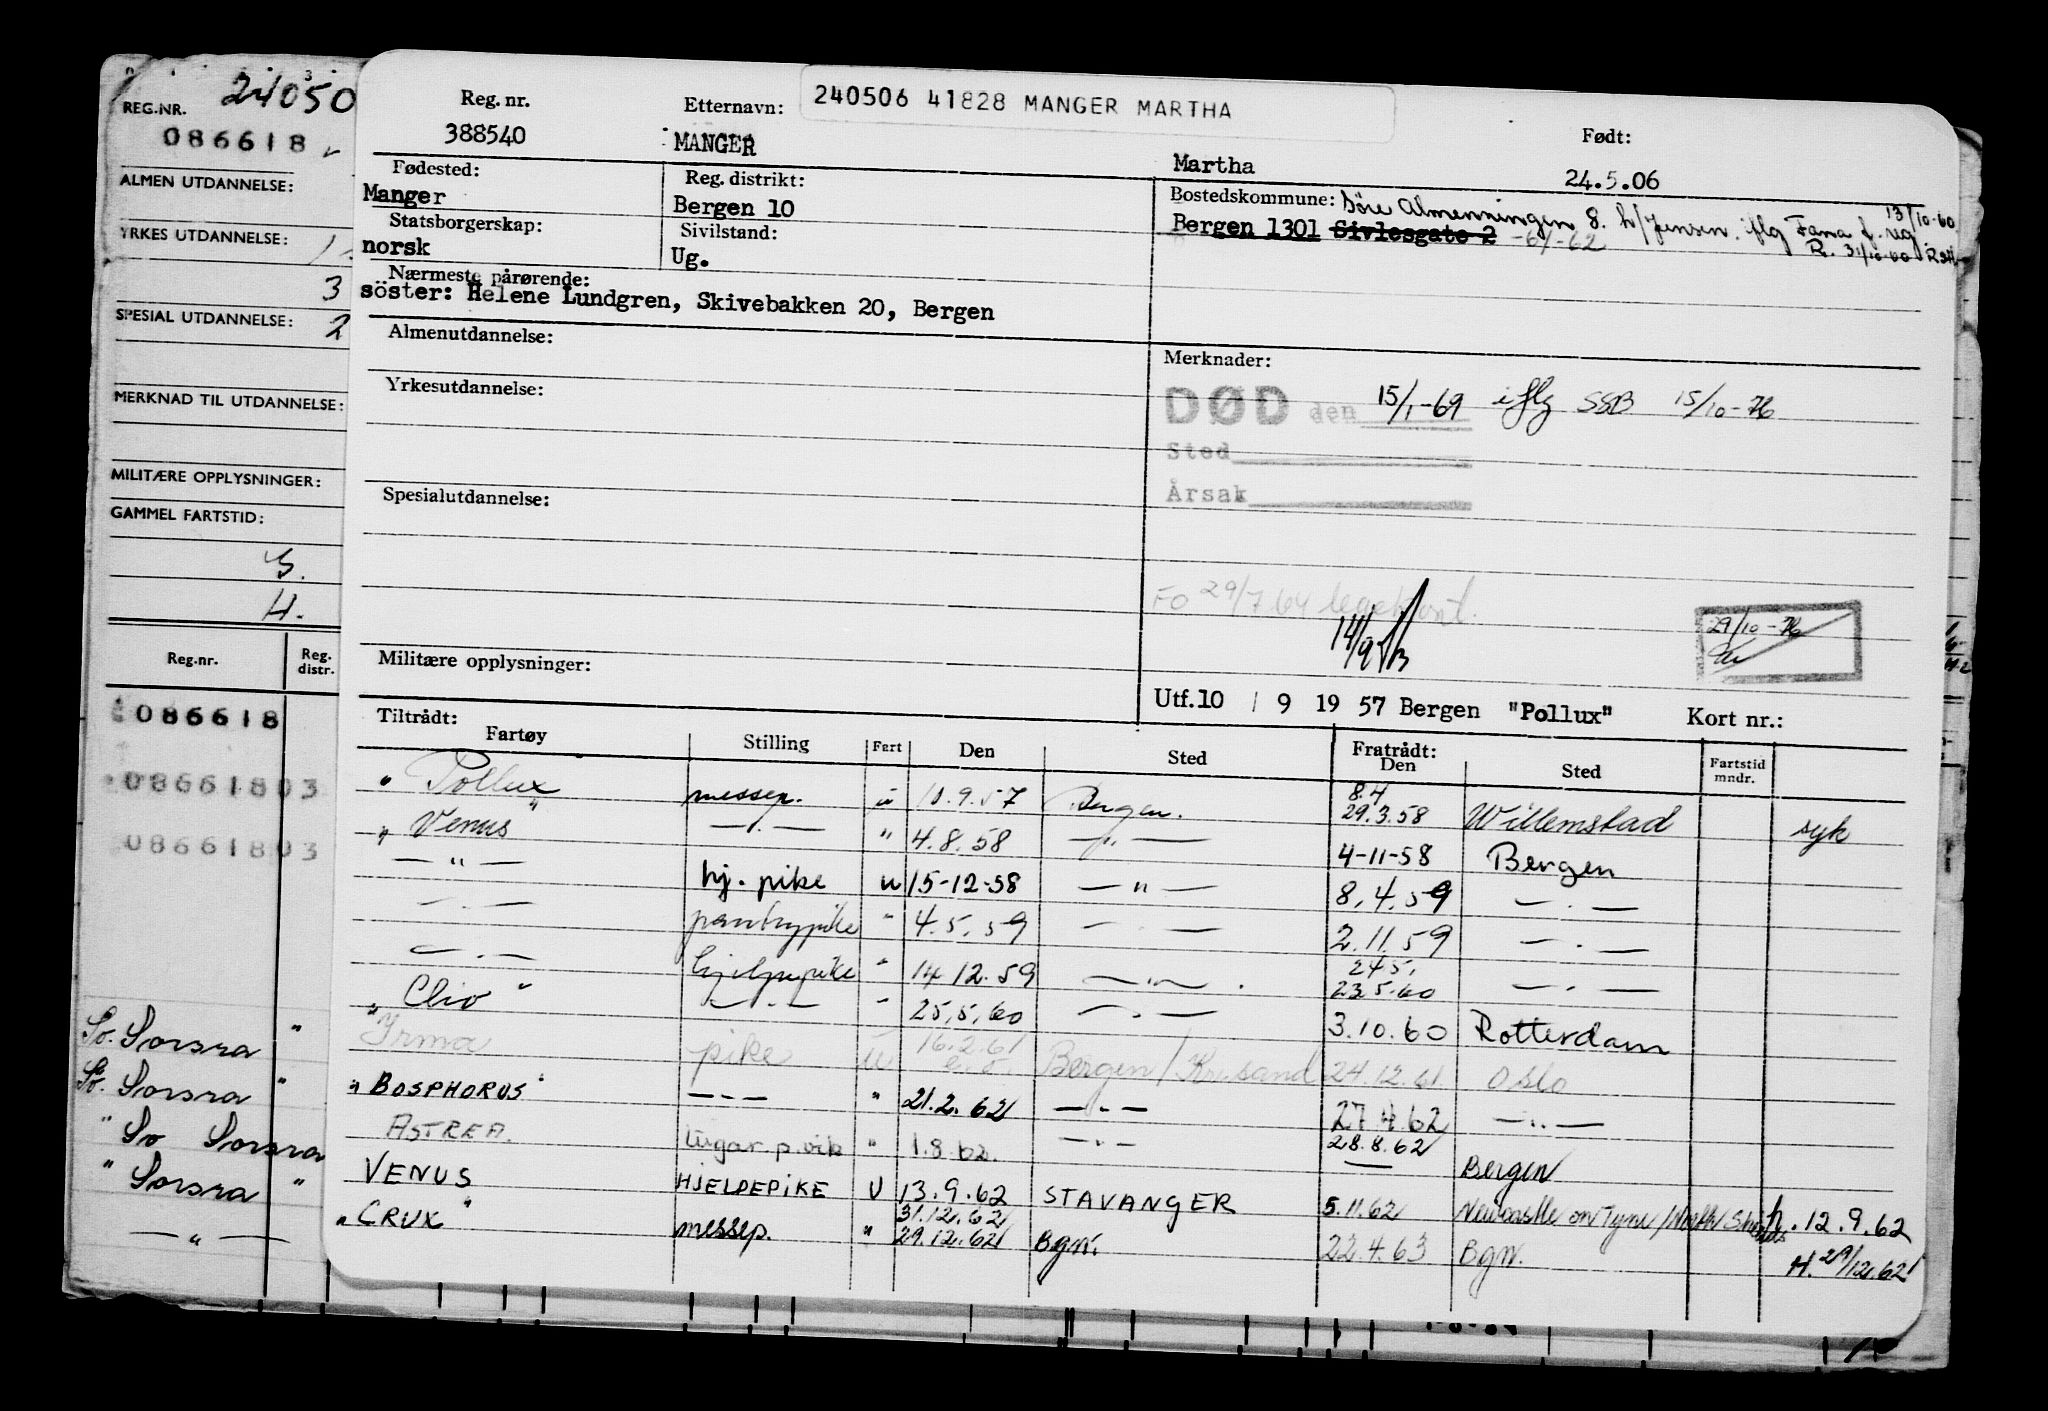 240506 41828 MANGER MARTHA
REG.NR. 24050
086618
ALMEN UTDANNELSE:
YRKES UTDANNELSE:
3
SPESIAL UTDANNELSE: 2
MERKNAD TIL UTDANNELSE:
MILITÆRE OPPLYSNINGER:
GAMMEL FARTSTID:
4.
Reg.nr. Reg. distr.
086618
08661803
08661803
Sorsra "
Sorsra "
" So Sorsra
" Sorsra "
— " —
Reg. nr. Etternavn: Født:
388540 MANGER Martha 24.5.06
Fødested: Reg. distrikt: Bostedskommune: Söre Almenningen 8. h/Jensen. iflg Fana 13/10-60
Manger Bergen 10 Bergen 1301 Sivlesgate 2 -61-62 R. 31/10-60
Statsborgerskap: Sivilstand:
norsk Ug.
Nærmeste pårørende:
söster: Helene Lundgren, Skivebakken 20, Bergen
Almenutdannelse: Merknader:
Yrkesutdannelse: DØD den 15/1-69 iflg SSB 15/10-76
Sted
Årsak
Spesialutdannelse:
FO 29/7 64
14/9
29/10-76
Militære opplysninger:
Utf. 10 / 9 19 57 Bergen "Pollux" Kort nr.:
Tiltrådt: Fratrådt:
Fartøy Stilling Fart Den Sted Den Sted Fartstid mndr.
" Pollux " messep. u 10.9.57 Bergen. 8.4 29.3.58 Willemstad syk
" Venus — . — " 4.8.58 — " — 4-11-58 Bergen
— " — hj. pike u 15-12-58 — " — 8.4.59 — . —
— . — pantrypike " 4.5.59 — . — 2.11.59 — . —
— . — hjelpepike " 14 12.59 — " — . 24 5. 23 5.60 — . —
" Clio " — . — " 25.5.60 — . — 3.10.60 Rotterdam
Irma pike u 16.2.61 Bergen/Krsand 24.12.61 Oslo
" BOSPHORUS " — . — " 21.2.62 — . — 27 4.62 — .. —
ASTREA. lugar.p.vik " 1.8.62. — .. — 28.8.62 — Bergen
VENUS HJELPEPIKE U 13.9.62 STAVANGER 5.11.62 Newcastle on Tyne/North Shields h. 12.9.62
" CRUX " messep. " 31.12.62 29.12.62 Bgn. 22.4.63 Bgn. H. 29/12.62